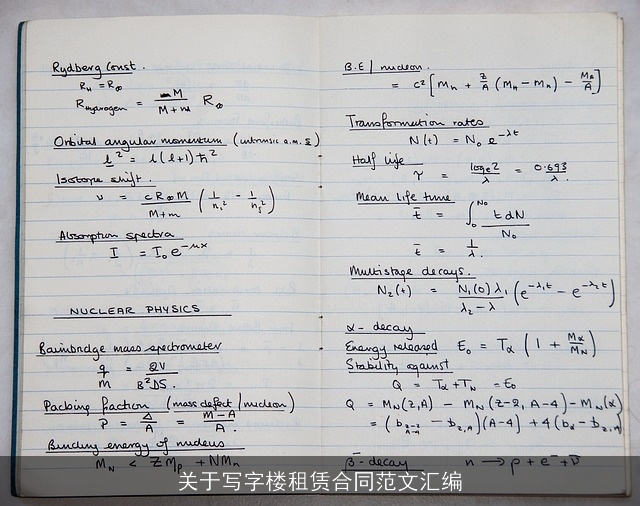 Rydberg Const.
R_H = R_∞
R_Hydrogen = M / (M+m) R_∞
Orbital angular momentum (intrinsic a.m. s)
l² = l(l+1)ħ²
Isotope shift.
ν = cR_∞M / (M+m) (1/n_i² - 1/n_j²)
Absorption spectra
I = I₀e^(-μx)
NUCLEAR PHYSICS
Bainbridge mass spectrometer
q/m = QV / B²DS.
Packing fraction (mass defect/nucleon)
P = Δ/A = (M-A)/A.
Binding energy of nucleus
M_N < ZM_p + NM_n
B.E/ nucleon.
= c² [ M_n + Z/A (M_H - M_n) - M_A/A ]
Transformation rates
N(t) = N₀ e^(-λt)
Half life
τ = log_e 2 / λ = 0.693 / λ.
Mean life time
t̄ = ∫₀^(N₀) t dN / N₀
t̄ = 1/λ.
Multistage decays.
N₂(t) = N₁(0)λ₁ / (λ₂-λ₁) (e^(-λ₁t) - e^(-λ₂t))
α- decay
Energy released E₀ = T_α (1 + M_α/M_N)
Stability against
Q = T_α + T_N = E₀
Q = M_N(Z,A) - M_N(Z-2, A-4) - M_N(α)
= (b_(Z-2,A-4) - b_(Z,A))(A-4) + 4(b_α - b_(Z,A))
β⁻-decay n → p + e⁻ + ν̄
关于写字楼租赁合同范文汇编